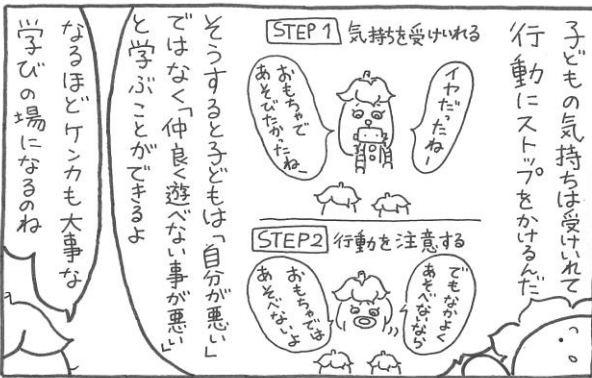 子どもの気持ちは受けいれて
行動にストップをかけるんだ
STEP1 気持ちを受けいれる
イヤだったねー
おもちゃで
あそびたかったねー
STEP2 行動を注意する
でもなかよく
あそべないなら
おもちゃでは
あそべないよ
そうすると子どもは「自分が悪い」
ではなく「仲良く遊べない事が悪い」
と学ぶことができるよ
なるほどケンカも大事な
学びの場になるのね